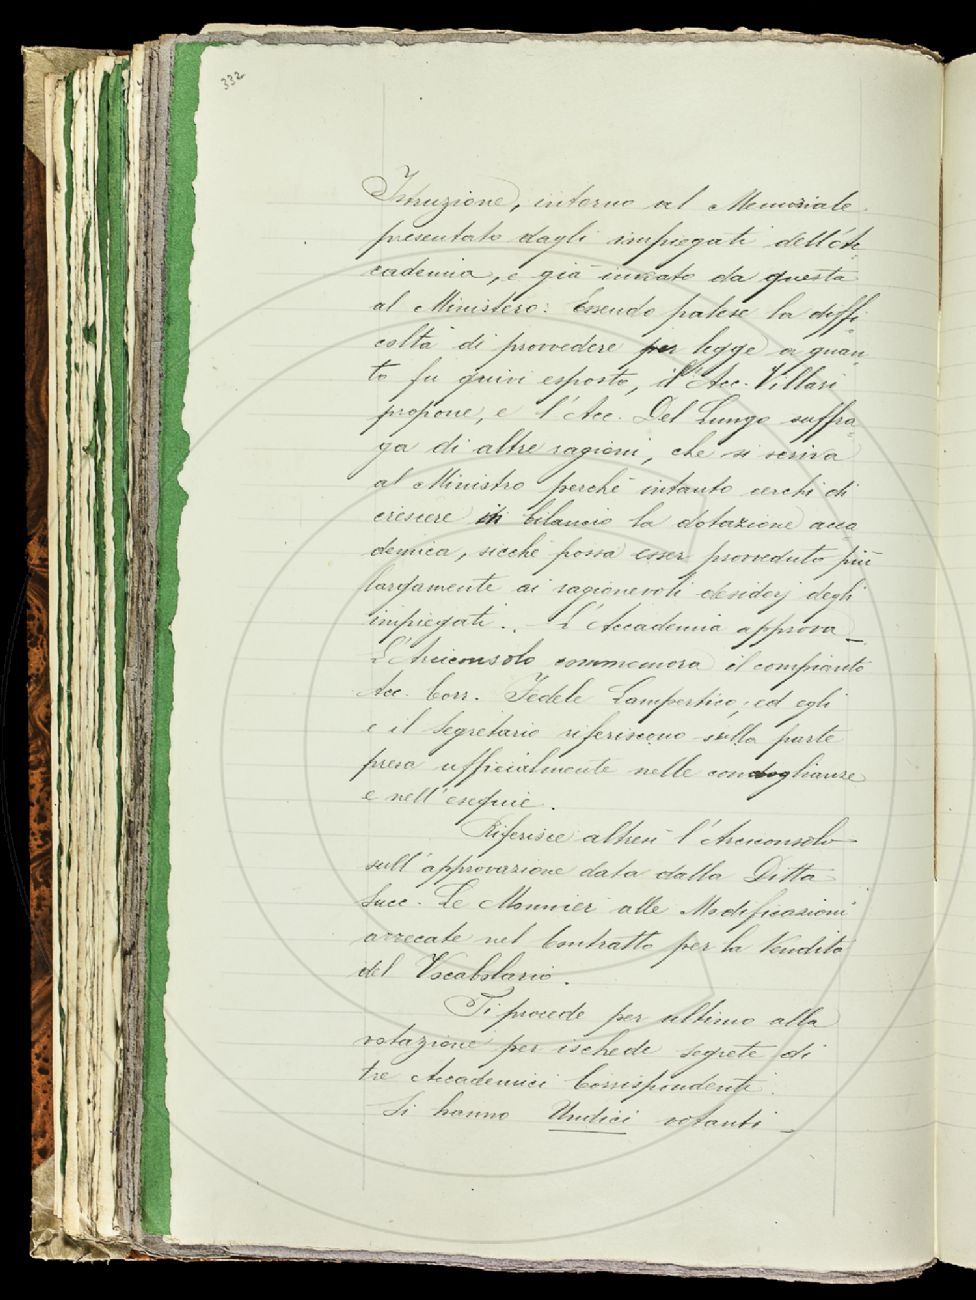 332
Istruzione, intorno al Memoriale
presentato dagli impiegati dell'Ac-
cademia, e già inviato da questa
al Ministero: Essendo palese la diffi-
coltà di provvedere per legge a quan
to fu quivi esposto, il l'Acc. Villari
propone, e l'Acc. Del Lungo suffra-
ga di altre ragioni, che si scriva
al Ministro perchè intanto cerchi di
crescere in bilancio la dotazione acca-
demica, sicchè possa esser provveduto più
largamente ai ragionevoli desiderj degli
impiegati. . L'Accademia approva _
L'Arciconsolo commemora il compianto
Acc. Corr. Fedele Lampertico; ed egli
e il Segretario riferiscono sulla parte
presa ufficialmente nelle condoglianze
e nell'esequie.
Riferisce altresì l'Arciconsolo
sull'approvazione data dalla Ditta
Succ. Le Monnier alle Modificazioni
arrecate nel Contratto per la Vendita
del Vocabolario.
Si procede per ultimo alla
votazione per ischede segrete di
tre Accademici Corrispondenti.
Si hanno Undici votanti _